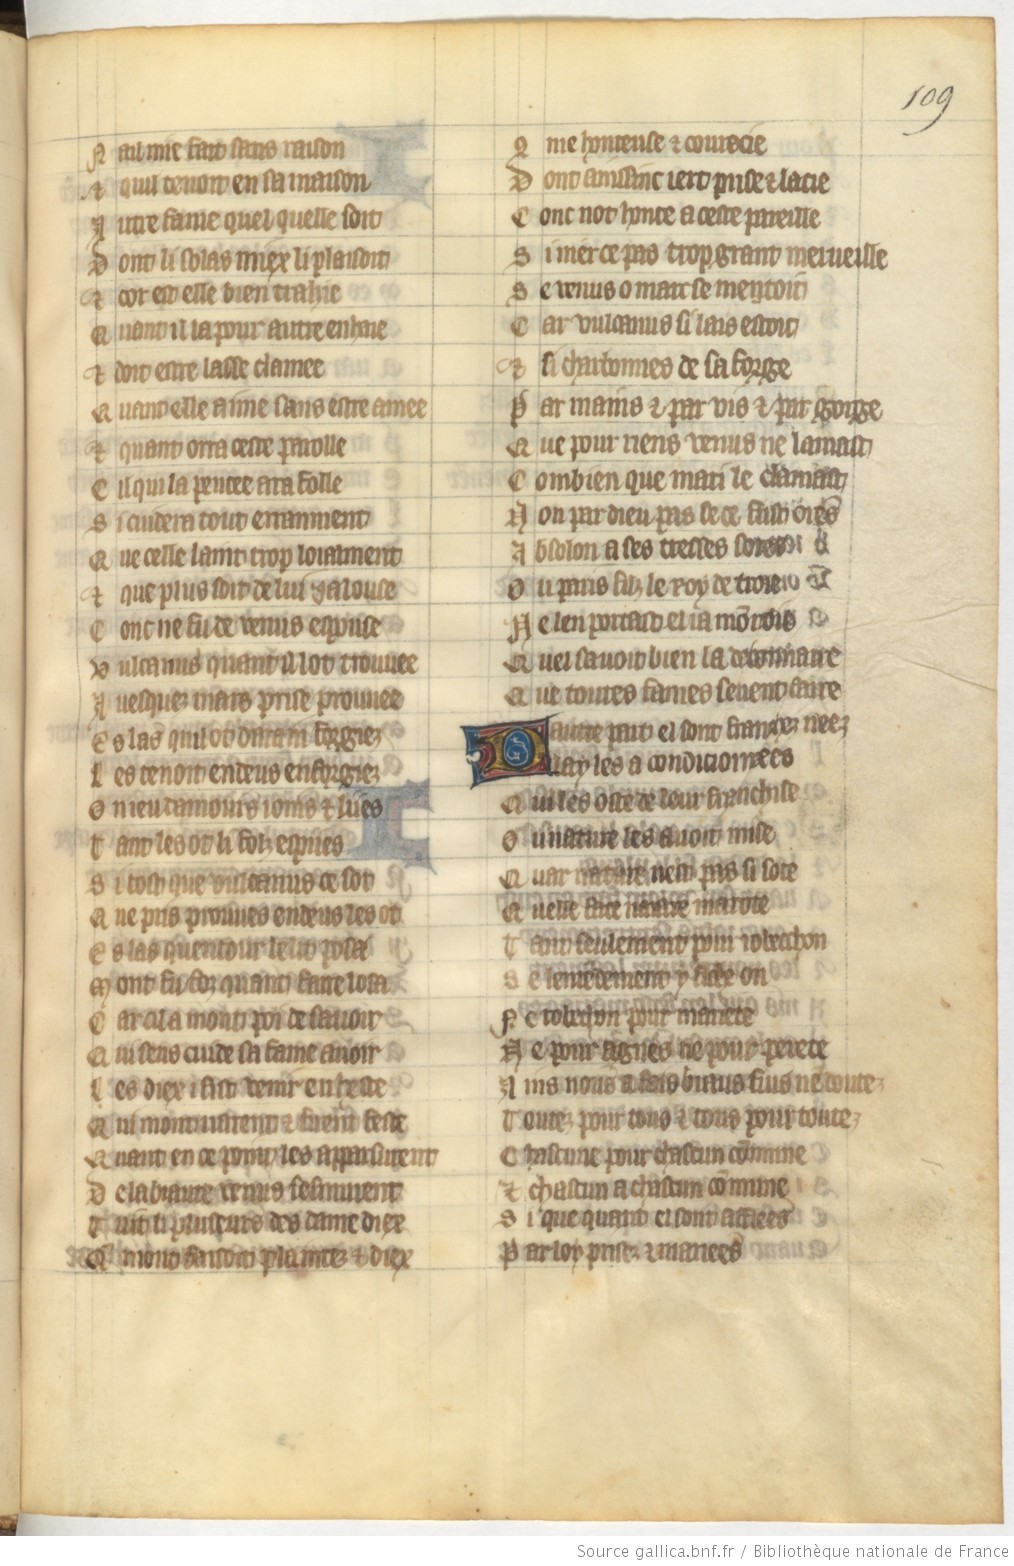 109
N ail mie fait sans raison
Et quil tenoit en sa maison
A utre fame quel quelle soit
D ont li solas miex li plaisoit
Et cor est elle bien trahie
Q uant il la pour autre enhaie
Et doit estre lasse clamee
Q uant elle aime sans estre amee
Et quant orra ceste parolle
C il qui la pensee ara folle
S i cuidera tout erranment
Q ue celle laint trop loialment
Et que plus soit de lui jalouse
C onc ne fu de venus espouse
V ulcanus quant il lot trouvee
A vesques mars prise prouvee
E s las quil ot darain forgiez
L es tenoit en deus enforgiez
O n ieu damours ioins et liies
T ant les ot li folz espiies
S i tost que vulcanus ce sot
Q ue pris prouves endeus les ot
E s las quentour le lit posa
M ont fu folz quant faire losa
C ar cil a mont poi de savoir
Q ui seus cuide sa fame avoir
L es diex i fait venir en heste
Q ui mont rirent et firent feste
Q uant en ce point les apparsurent
D e la biaute venus sesmurent
T uit li pluseurs des dame diex
Q ui mont faisoit plaintez et diex
C ome honteuse et courecie
D ont ainssinc iert prise et lacie
C onc not honte a ceste pareille
S i nierce pas trop grant merveille
S e venus o mars se mentoit
C ar vulcanus si lais estoit
Et si charbonnes de sa forge
P ar mains et par vis et par gorge
Q ue pour riens venus ne lamast
C ombien que mari le clamast
N on par dieu pas se ce fust ores
A bsolon a ses tresses sores
O u paris filz le roy de troie
N e len portast el ia
Q uel savoit bien la debonnaire
Q ue toutes fames sevent faire
D autre part el sont franchez neez
L ay les a condicionnees
Q ui les oste de leur franchise
O u nature les avoit mise
Q uar nature nest pas si sote
Q uelle face naistre marote
T ant seulement pour robechon
S e lentendement y fiche on
N e robechon pour mariete
N e pour agnes ne pour perete
A ins nous a fais biaus fius ne doutez
T outez pour tous et tous pour toutez
C hascune pour chascun commune
Et chascun a chascun commune
S i que quant el sont affiees
P ar loy prises et mariees
Source gallica.bnf.fr / Bibliothèque nationale de France